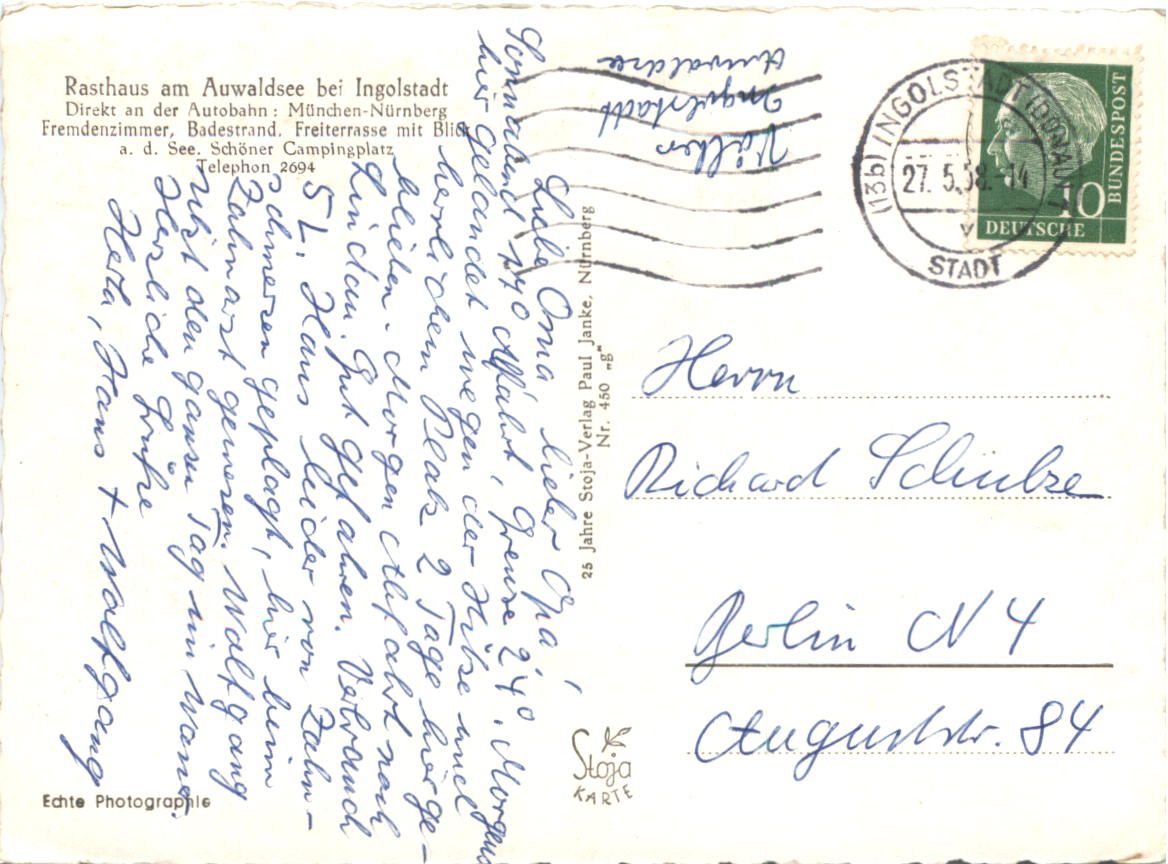 Rasthaus am Auwaldsee bei Ingolstadt
Direkt an der Autobahn: München-Nürnberg
Fremdenzimmer, Badestrand. Freiterrasse mit Blick
a. d. See. Schöner Campingplatz
Telephon 2694
Völker
Ingolstadt
Auwaldsee
(13b) INGOLSTADT (DONAU)
27. 5.58.-14
STADT
DEUTSCHE
BUNDESPOST
10
Liebe Oma, lieber Opa,
Sonnabend 14⁰ Abfahrt, Grenze 24⁰. Morgens
hier gelandet wegen der Hitze und
herrlichem Platz 2 Tage hierge-
blieben. Morgen Abfahrt nach
Lindau. Gut gefahren. Verbrauch
5 L. Hans leider von Zahn-
schmerzen geplagt, hier beim
Zahnarzt gewesen. Wolfgang
ist den ganzen Tag im Wasser.
Herzliche Grüße
Herta, Hans + Wolfgang
25 Jahre Stoja-Verlag Paul Janke, Nürnberg
Nr. 450 „g"
Herrn
Richard Schulze
Berlin N 4
Auguststr. 84
Stoja
KARTE
Echte Photographie